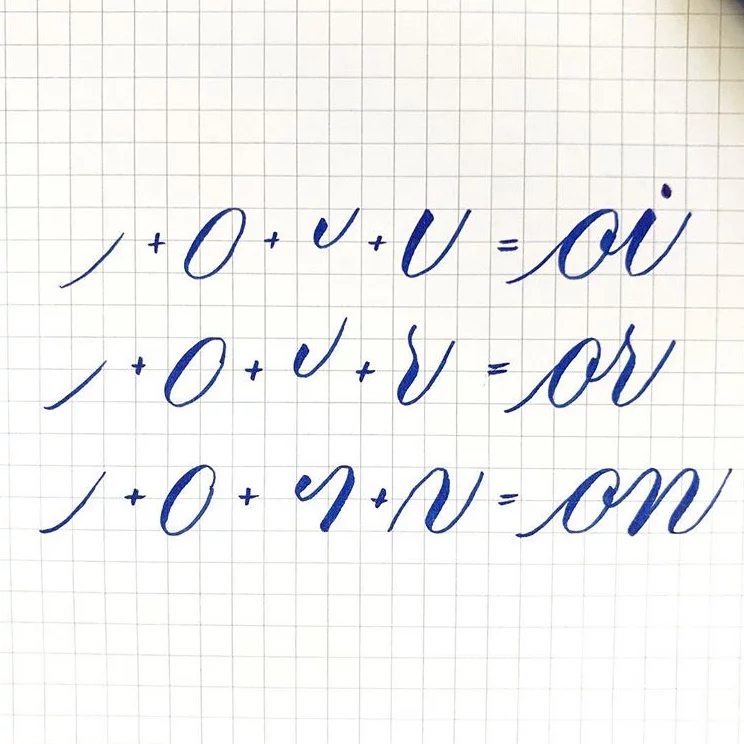 / + O + v + v = oi
/ + O + v + r = or
/ + O + n + n = on